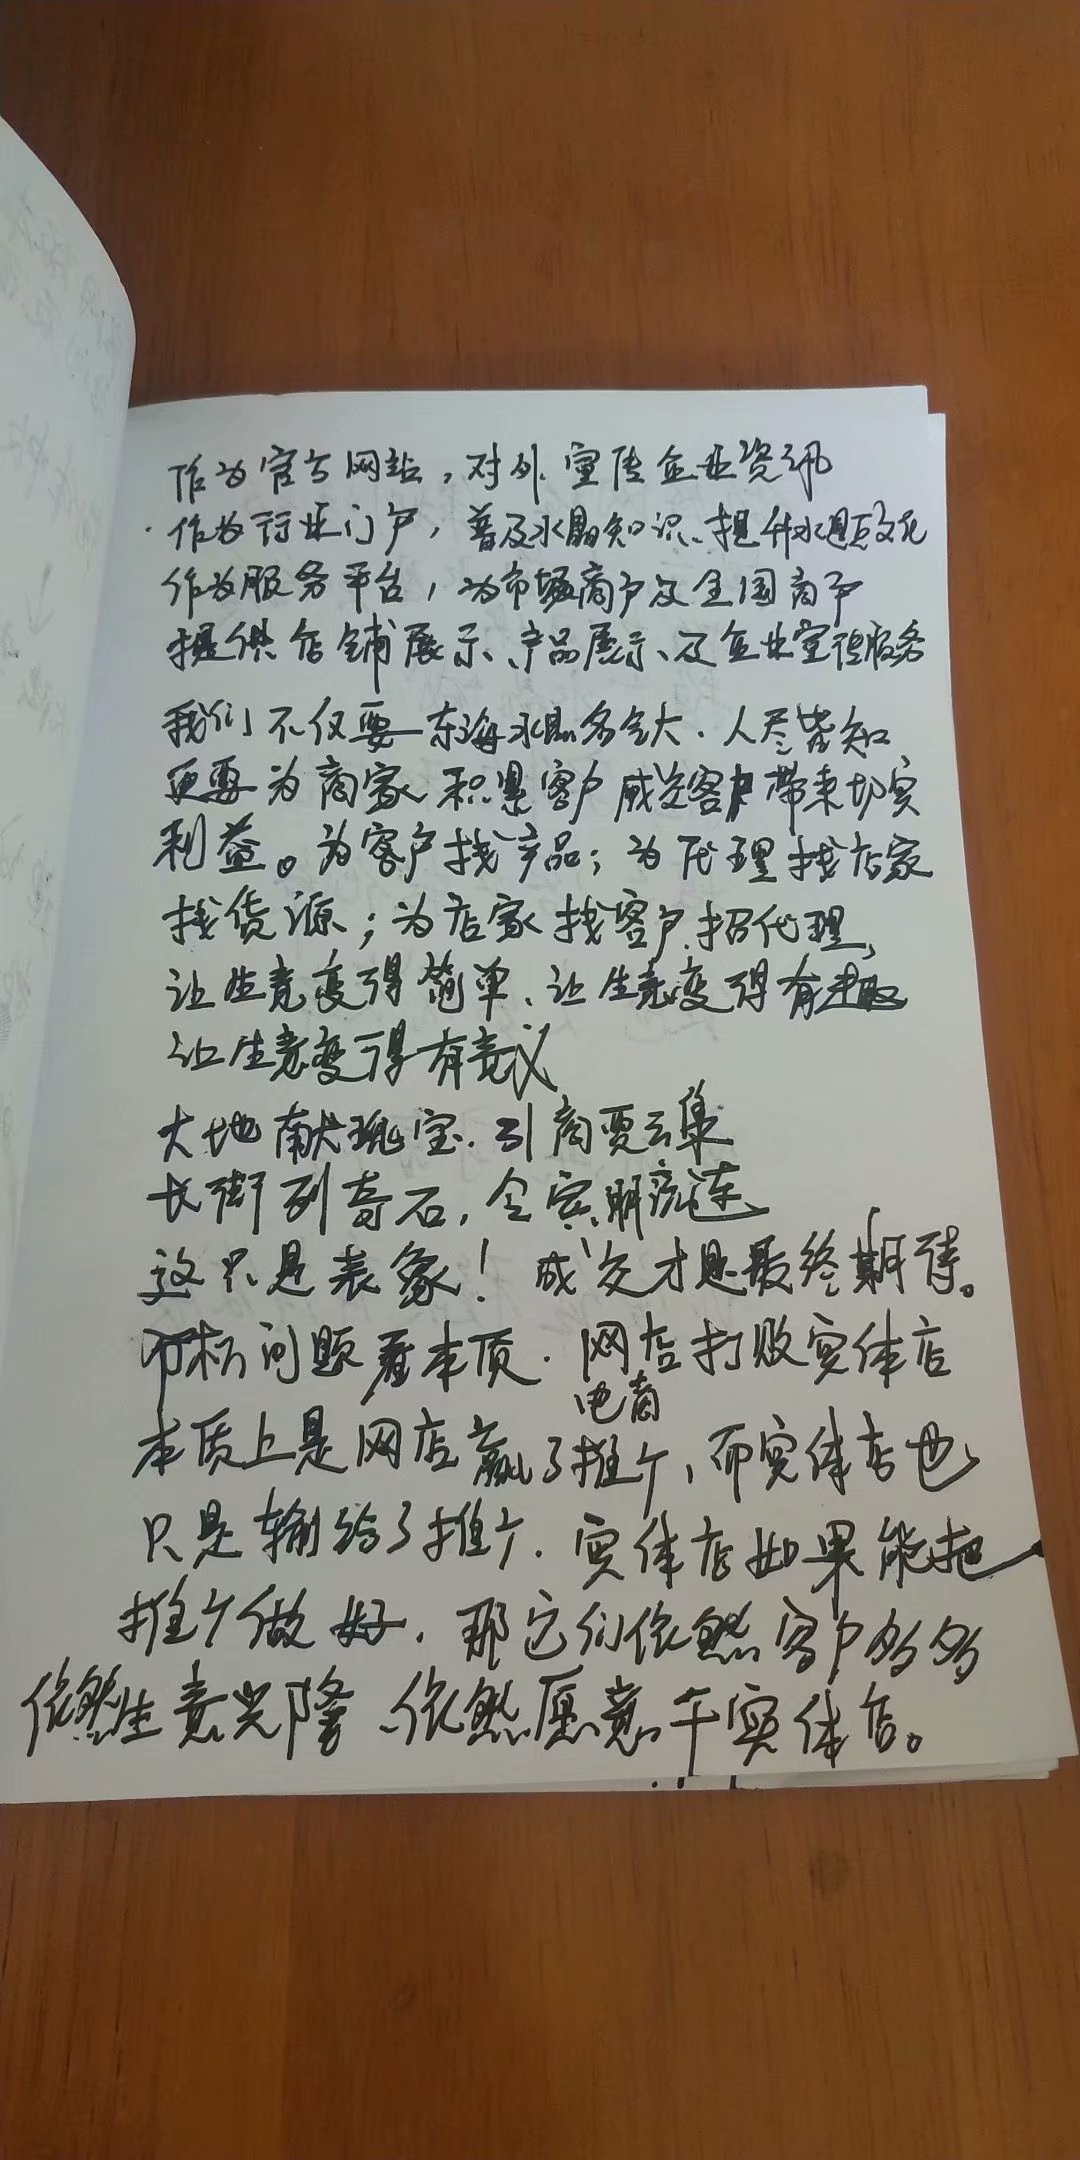 作为官方网站，对外宣传企业资讯
·作为行业门户，普及水晶知识、提升水晶文化
作为服务平台，为市场商户及全国商户
提供店铺展示、产品展示、及企业宣传服务
我们不仅要东海水晶名气大．人尽皆知
更要为商家积累客户 成交客户 带来切实
利益。为客户找产品；为代理找店家
找货源；为店家找客户.招代理，
让生意变得简单、让生意变得有趣
让生意变得有意义
大地献瑰宝．引商贾云集
长街列奇石，令宾朋流连
这只是表象！成交才是最终期待。
分析问题看本质．网店打败实体店
电商
本质上是网店赢了推广，而实体店也
只是输给了推广．实体店如果能把
推广做好．那它们依然客户多多
依然生意兴隆、依然愿意干实体店。